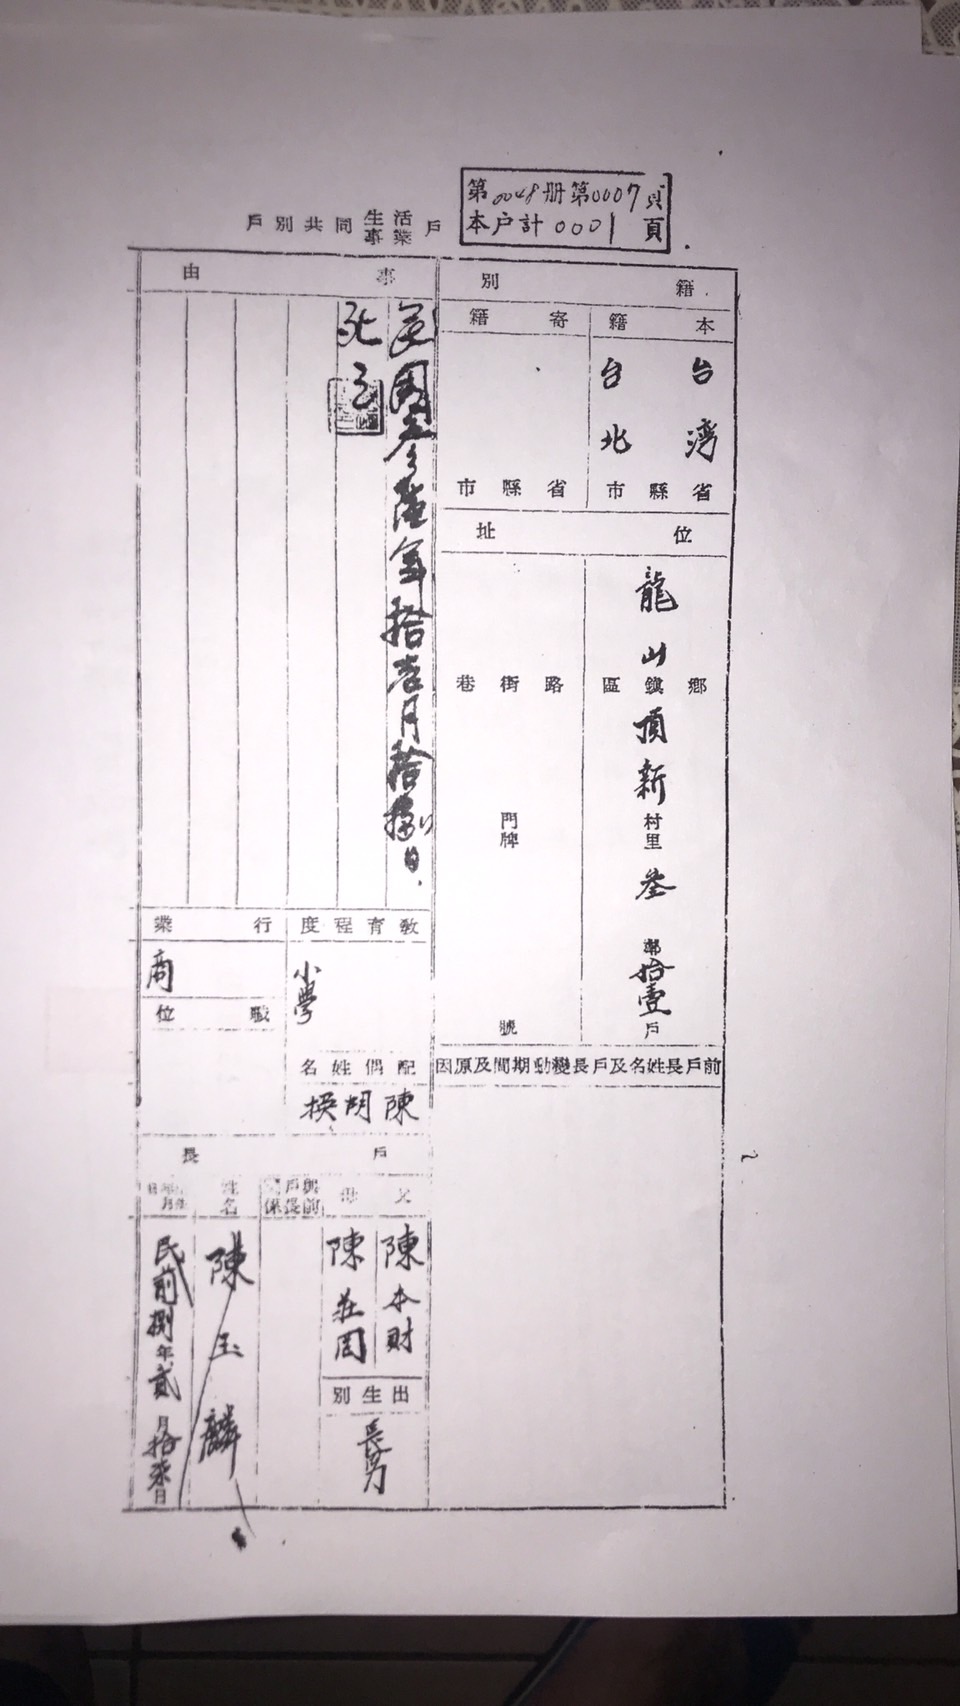 第0048册第0007頁
本户計0001頁
戶別共同生活事業戶
籍別
本籍
寄籍
台灣省
台北縣市
省縣市
位址
龍山鄉鎮區
頂新村里
叁鄰
拾壹戶
路街巷
門牌
號
前戶長姓名及戶長變動期間及原因
事由
民國叁陸年拾壹月拾捌日
死亡
教育程度
小學
行業
商
職位
配偶姓名
陳胡
戶長
父
陳本財
母
陳莊罔
出生別
長男
與前戶長關係
姓名
陳玉麟
出生年月日
民前捌年貳月拾柒日